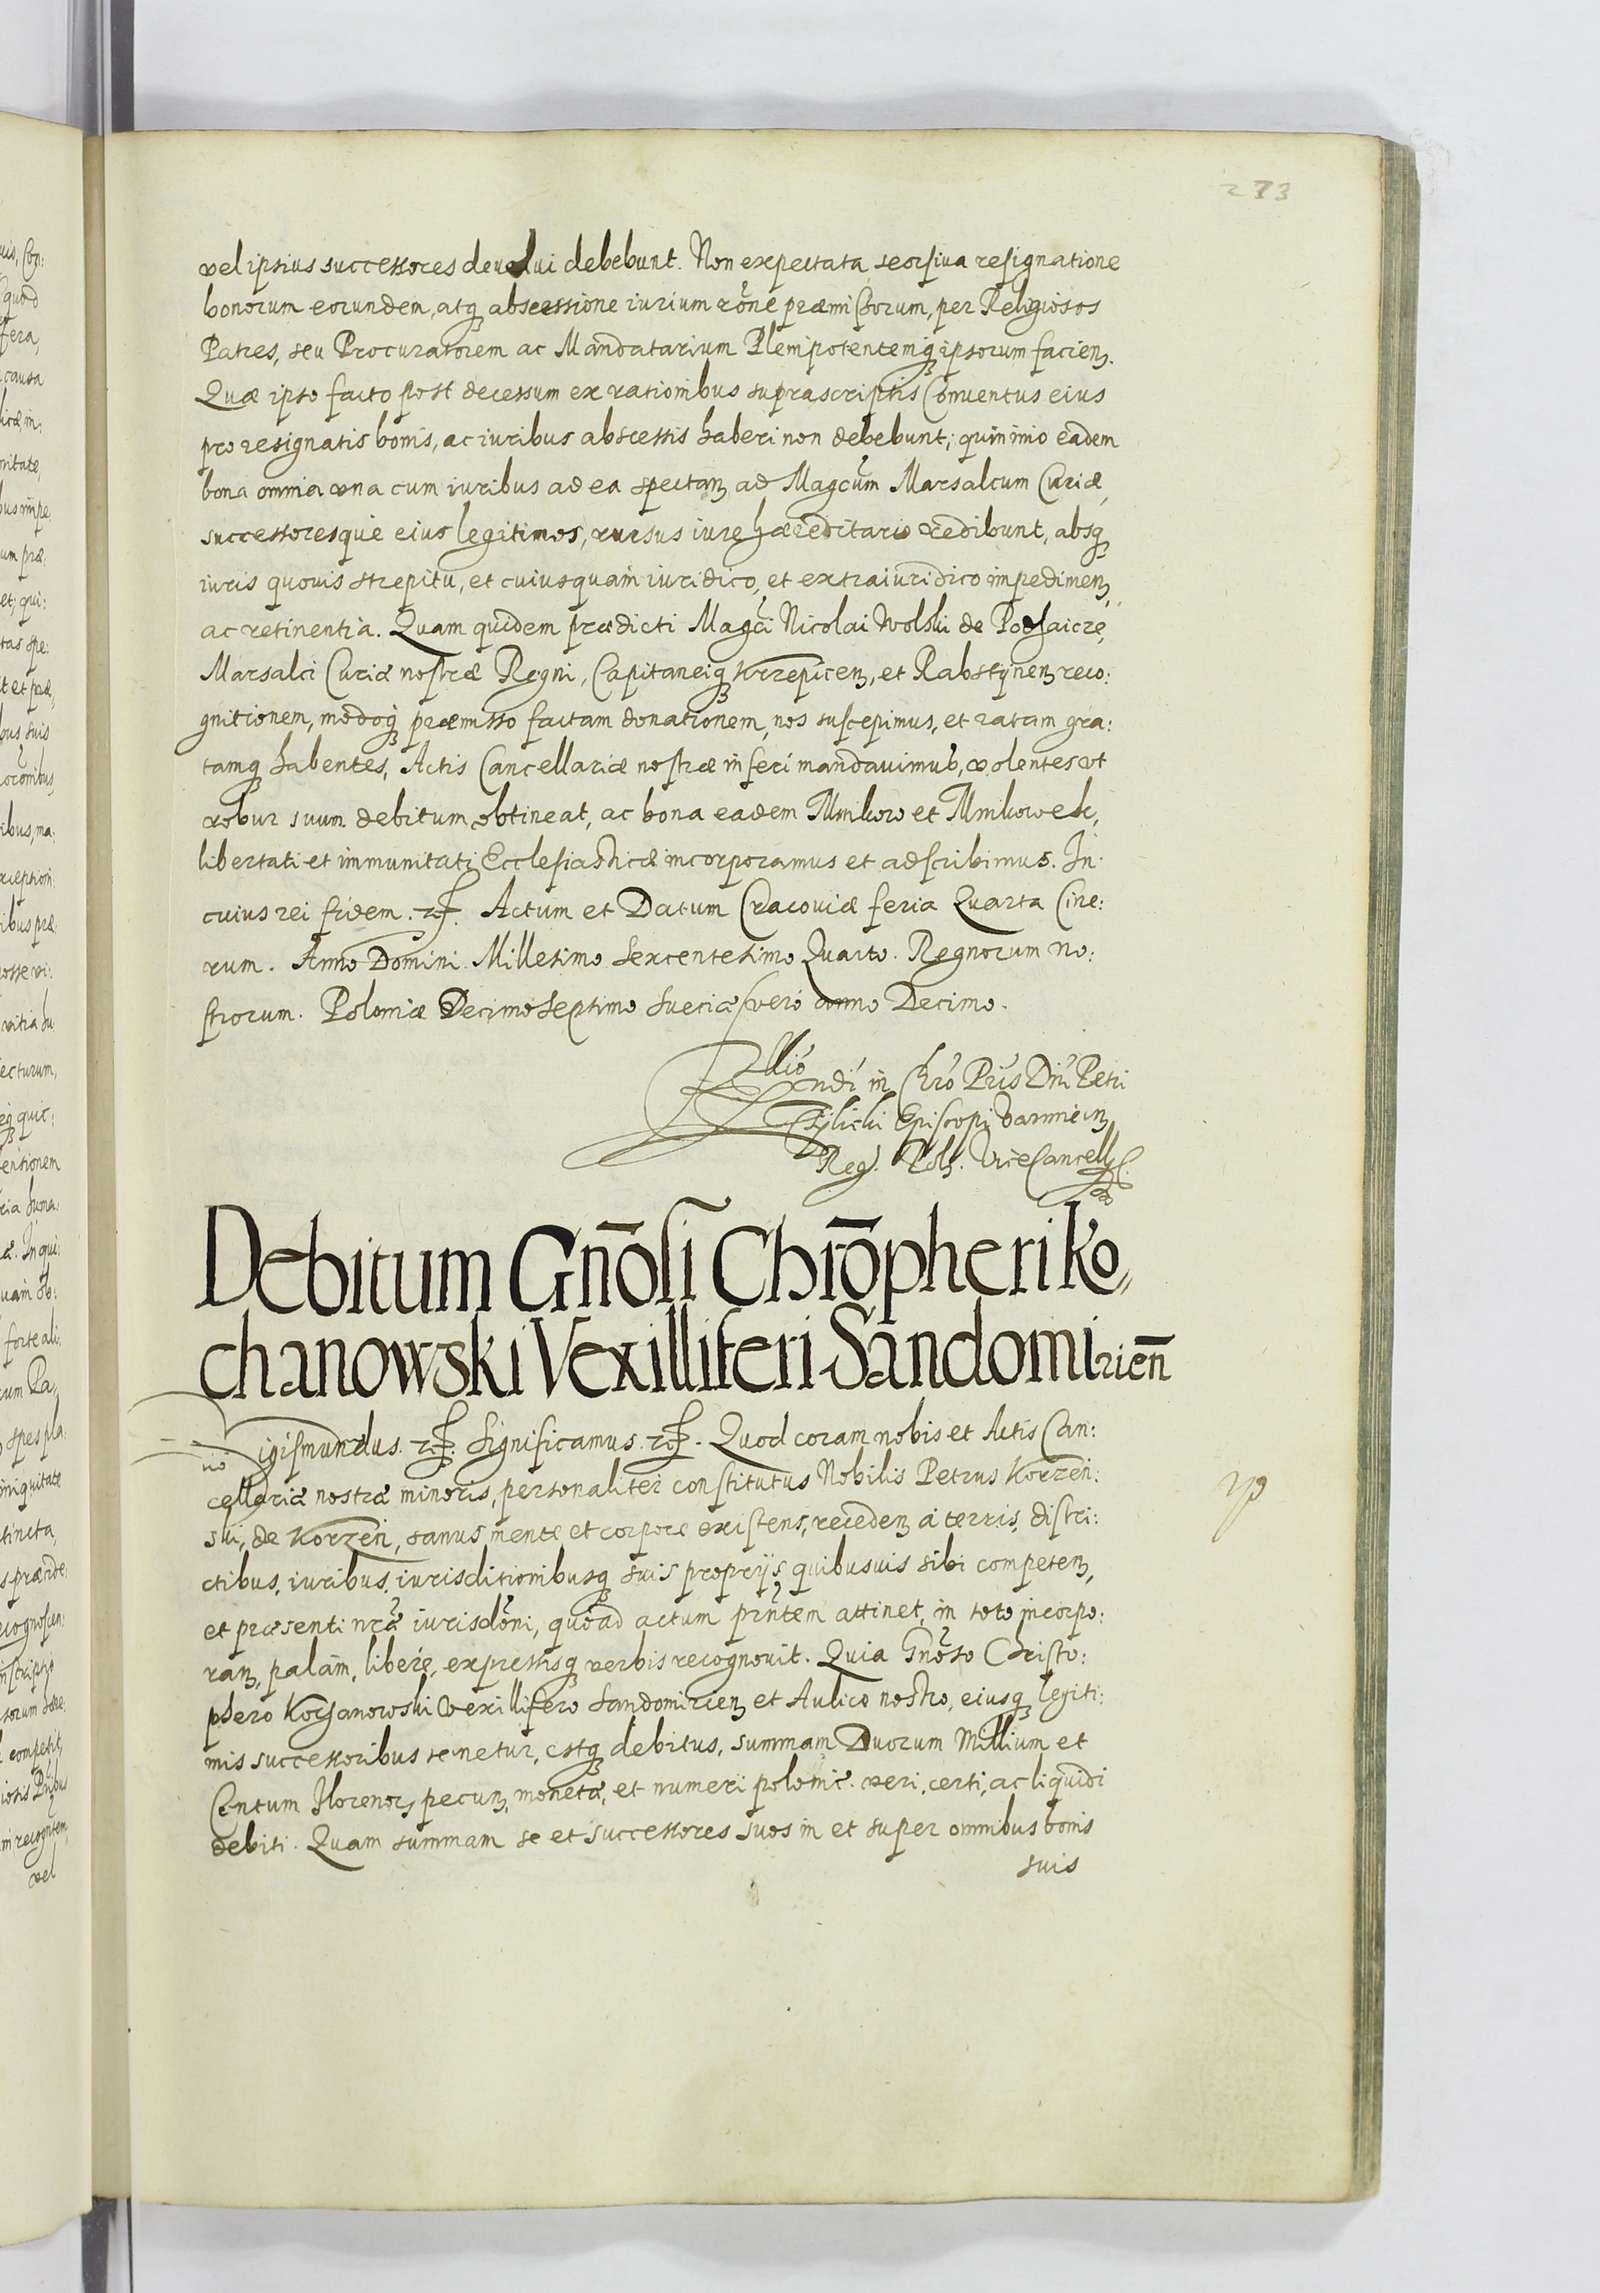 273
vel ipsius successores deuolui debebunt. Non expectata seorsiua resignatione
bonorum eorundem, atq₃ abscessione iurium rōne præmissorum, per Religiosos
Patres, seu Procuratorem ac Mandatarium Plenipotentemq₃ ipsorum facien.
Quæ ipso facto post decessum ex rationibus suprascriptis Conuentus eius
pro resignatis bonis, ac iuribus abscessis haberi non debebunt; quinimo eadem
bona omnia vna cum iuribus ad ea spectan ad Magcum Marsalcum Curiæ,
successoresque eius legitimos, rursus iure hæreditario redibunt, absq₃
iuris quouis strepitu, et cuiusquam iuridico, et extraiuridico impedimen,
ac retinentia. Quam quidem prædicti Magci Nicolai Wolski de Podhaicze,
Marsalci Curiæ nostræ Regni, Capitaneiq₃ Krzepicen, et Rabstynen reco:
gnitionem, modoq₃ præmisso factam donationem, nos suscepimus, et ratam gra:
tamq₃ habentes, Actis Cancellariæ nostræ inseri mandauimus, volentes vt
robur suum debitum obtineat, ac bona eadem Mnikow et Mnikowek,
libertati et immunitati Ecclesiasticæ incorporamus et adscribimus. In
cuius rei fidem. rc. Actum et Datum Cracouiæ feria Quarta Cine:
rum. Anno Domini Millesimo Sexcentesimo Quarto. Regnorum no:
strorum. Poloniæ Decimo Septimo Sueciæ vero anno Decimo.
Rllio
ndi in Chro Pris Dni Petri
Tylicki Episcopi Varmien
Reg. Pol. ViceCancell
Debitum Gnōsi Chrōpheri Ko,,
chanowski Vexilliferi Sandomirien̄
Sigismundus. rc. Significamus. rc. Quod coram nobis et Actis Can:
cellariæ nostræ minoris, personaliter constitutus Nobilis Petrus Korzeń:
ski, de Korzeń, sanus mente et corpore existens, receden à terris, distri:
ctibus, iuribus, iurisditionibusq₃ suis proprijs quibusuis sibi competen,
et præsenti nræ iurisdōni, quoad actum prn̄tem attinet, in toto incorpo:
ran, palàm, libere, expressisq₃ verbis recognouit. Quia Gnoso Christo:
phero Kochanowski Vexillifero Sandomirien et Aulico nostro, eiusq₃ legiti:
mis successoribus tenetur, estq₃ debitus, summam Duorum Millium et
Centum Florenor, pecun, monetæ, et numeri polonic. veri, certi, ac liquidi
debiti. Quam summam se et successores suos in et super omnibus bonis
suis